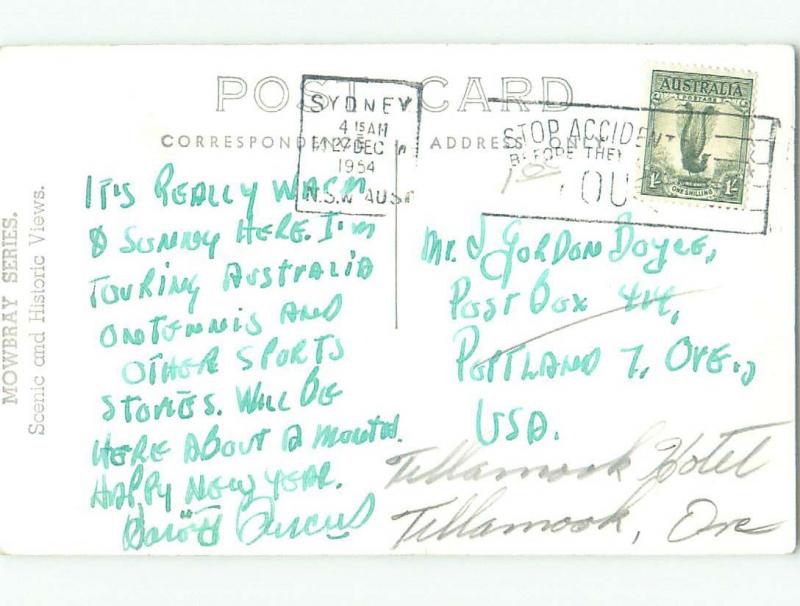 POST CARD
CORRESPONDENCE ADDRESS ONLY
SYDNEY
4 15AM
27 DEC
1954
N.S.W AUST
STOP ACCIDENT
BEFORE THEY
YOU
AUSTRALIA
POSTAGE
ONE SHILLING
1/-
1/-
1.00
MOWBRAY SERIES.
Scenic and Historic Views.
IT'S REALLY WARM
& SUNNY HERE. I'M
TOURING AUSTRALIA
ON TENNIS AND
OTHER SPORTS
STORIES. WILL BE
HERE ABOUT A MONTH.
HAPPY NEW YEAR.
MR. J GORDON DOYLE,
POST BOX 414,
PORTLAND 7, ORE.,
USA.
Tillamook Hotel
Tillamook, Ore